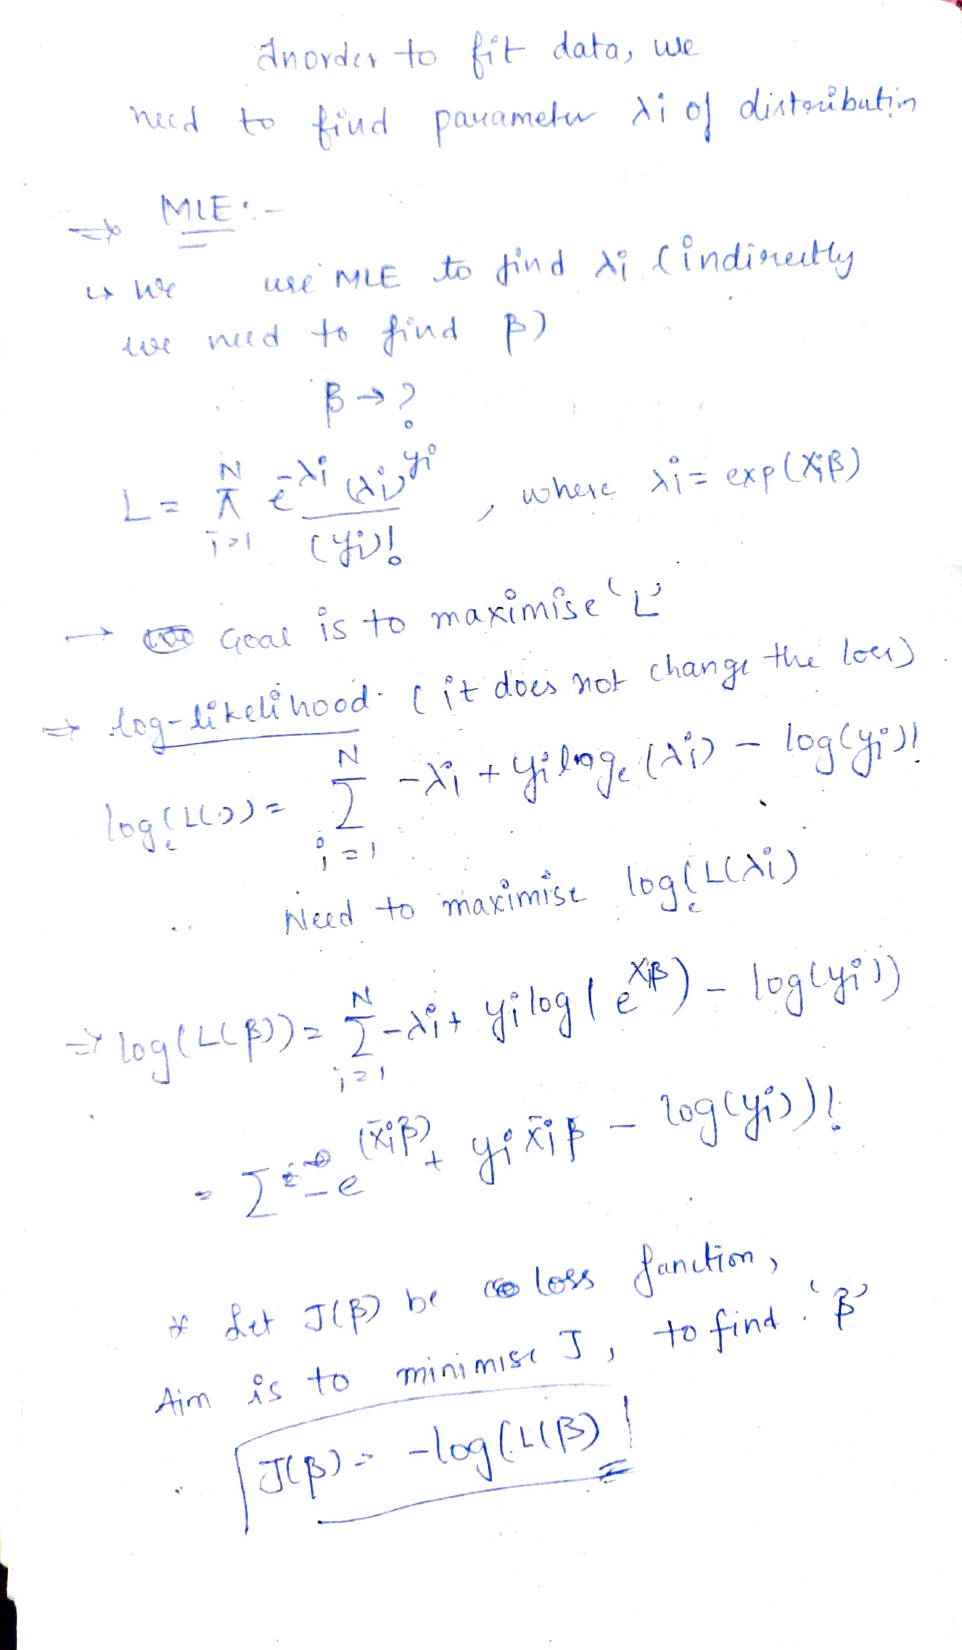 Inorder to fit data, we
need to find parameter λi of distribution
⇒ MLE :-
↳ we use MLE to find λi (indirectly
we need to find β)
β → ?
L = π_{i=1}^{N} e^{-λi} (λi)^{yi} / (yi)! , where λi = exp(Xiβ)
→ Goal is to maximise 'L'
⇒ log-likelihood. (it does not change the loss)
log_e(L(λ)) = Σ_{i=1}^{N} -λi + yi log_e(λi) - log(yi)!
Need to maximise log_e(L(λi)
⇒ log(L(β)) = Σ_{i=1}^{N} -λi + yi log(e^{Xiβ}) - log(yi))
= Σ -e^{(x̄iβ)} + yi x̄iβ - log(yi))!
* Let J(β) be loss function,
Aim is to minimise J, to find 'β'
J(β) = -log(L(β)